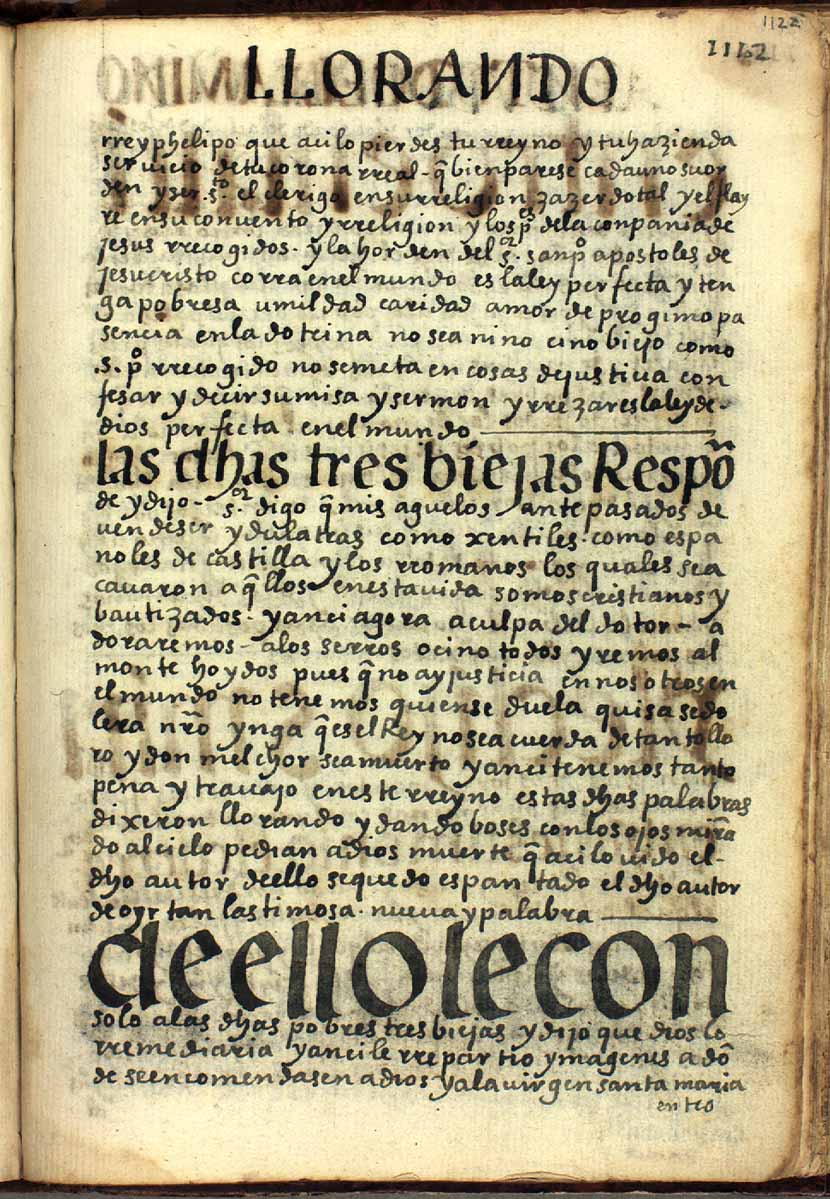 1122
1112
LLORANDO
rreyphelipo que aci lo pierdes tu rreyno y tu hazienda
servicio de tu corona rreal - q̄ bien parese cada uno su or
den y ser. s.to el clerigo en su rreligion zazerdotal y el flay
re en su convento y rreligion y los p.es de la conpania de
jesus rrecogidos. y la horden del s.or san p.o apostoles de
jesucristo corra en el mundo es la ley perfecta y ten
ga pobresa umildad caridad amor de progimo pa
sencia en la dotrina no sea nino cino biejo como
.s. p.o rrecogido no se meta en cosas de justicia con
fesar y decir su misa y sermon y rrezar es la ley de -
dios perfecta en el mundo
las dhas tres biejas Respō
de y dijo - s.or digo q̄ mis aguelos ante pasados de
uen de ser ydulatras como xentiles como espa
noles de castilla y los rromanos los quales se a
cauaron aq̄llos en esta uida somos cristianos y
bautizados. y anci agora a culpa del dotor - a
doraremos - a los serros o cino todos yremos al
monte hoydos pues q̄ no ay justicia en nosotros en
el mundo no tenemos quien se duela quisa se do
lera nr̄o ynga q̄ es el Rey no se acuerda de tanto llo
ro y don melchor sea muerto y anci tenemos tanto
pena y trauajo en este rreyno estas dhas palabras
dixeron llorando y dando boses con los ojos mirā
do al cielo pedian a dios muerte q̄ aci lo uido el -
dho autor de ello se quedo espantado el dho autor
de oyr tan lastimosa. nueua y palabra
de ello le con
solo a las dhas pobres tres biejas y dijo que dios lo
rremediaria y anci le rrepartio ymagenes a dō
de se encomendasen a dios y a la uirgen santa maria
entro